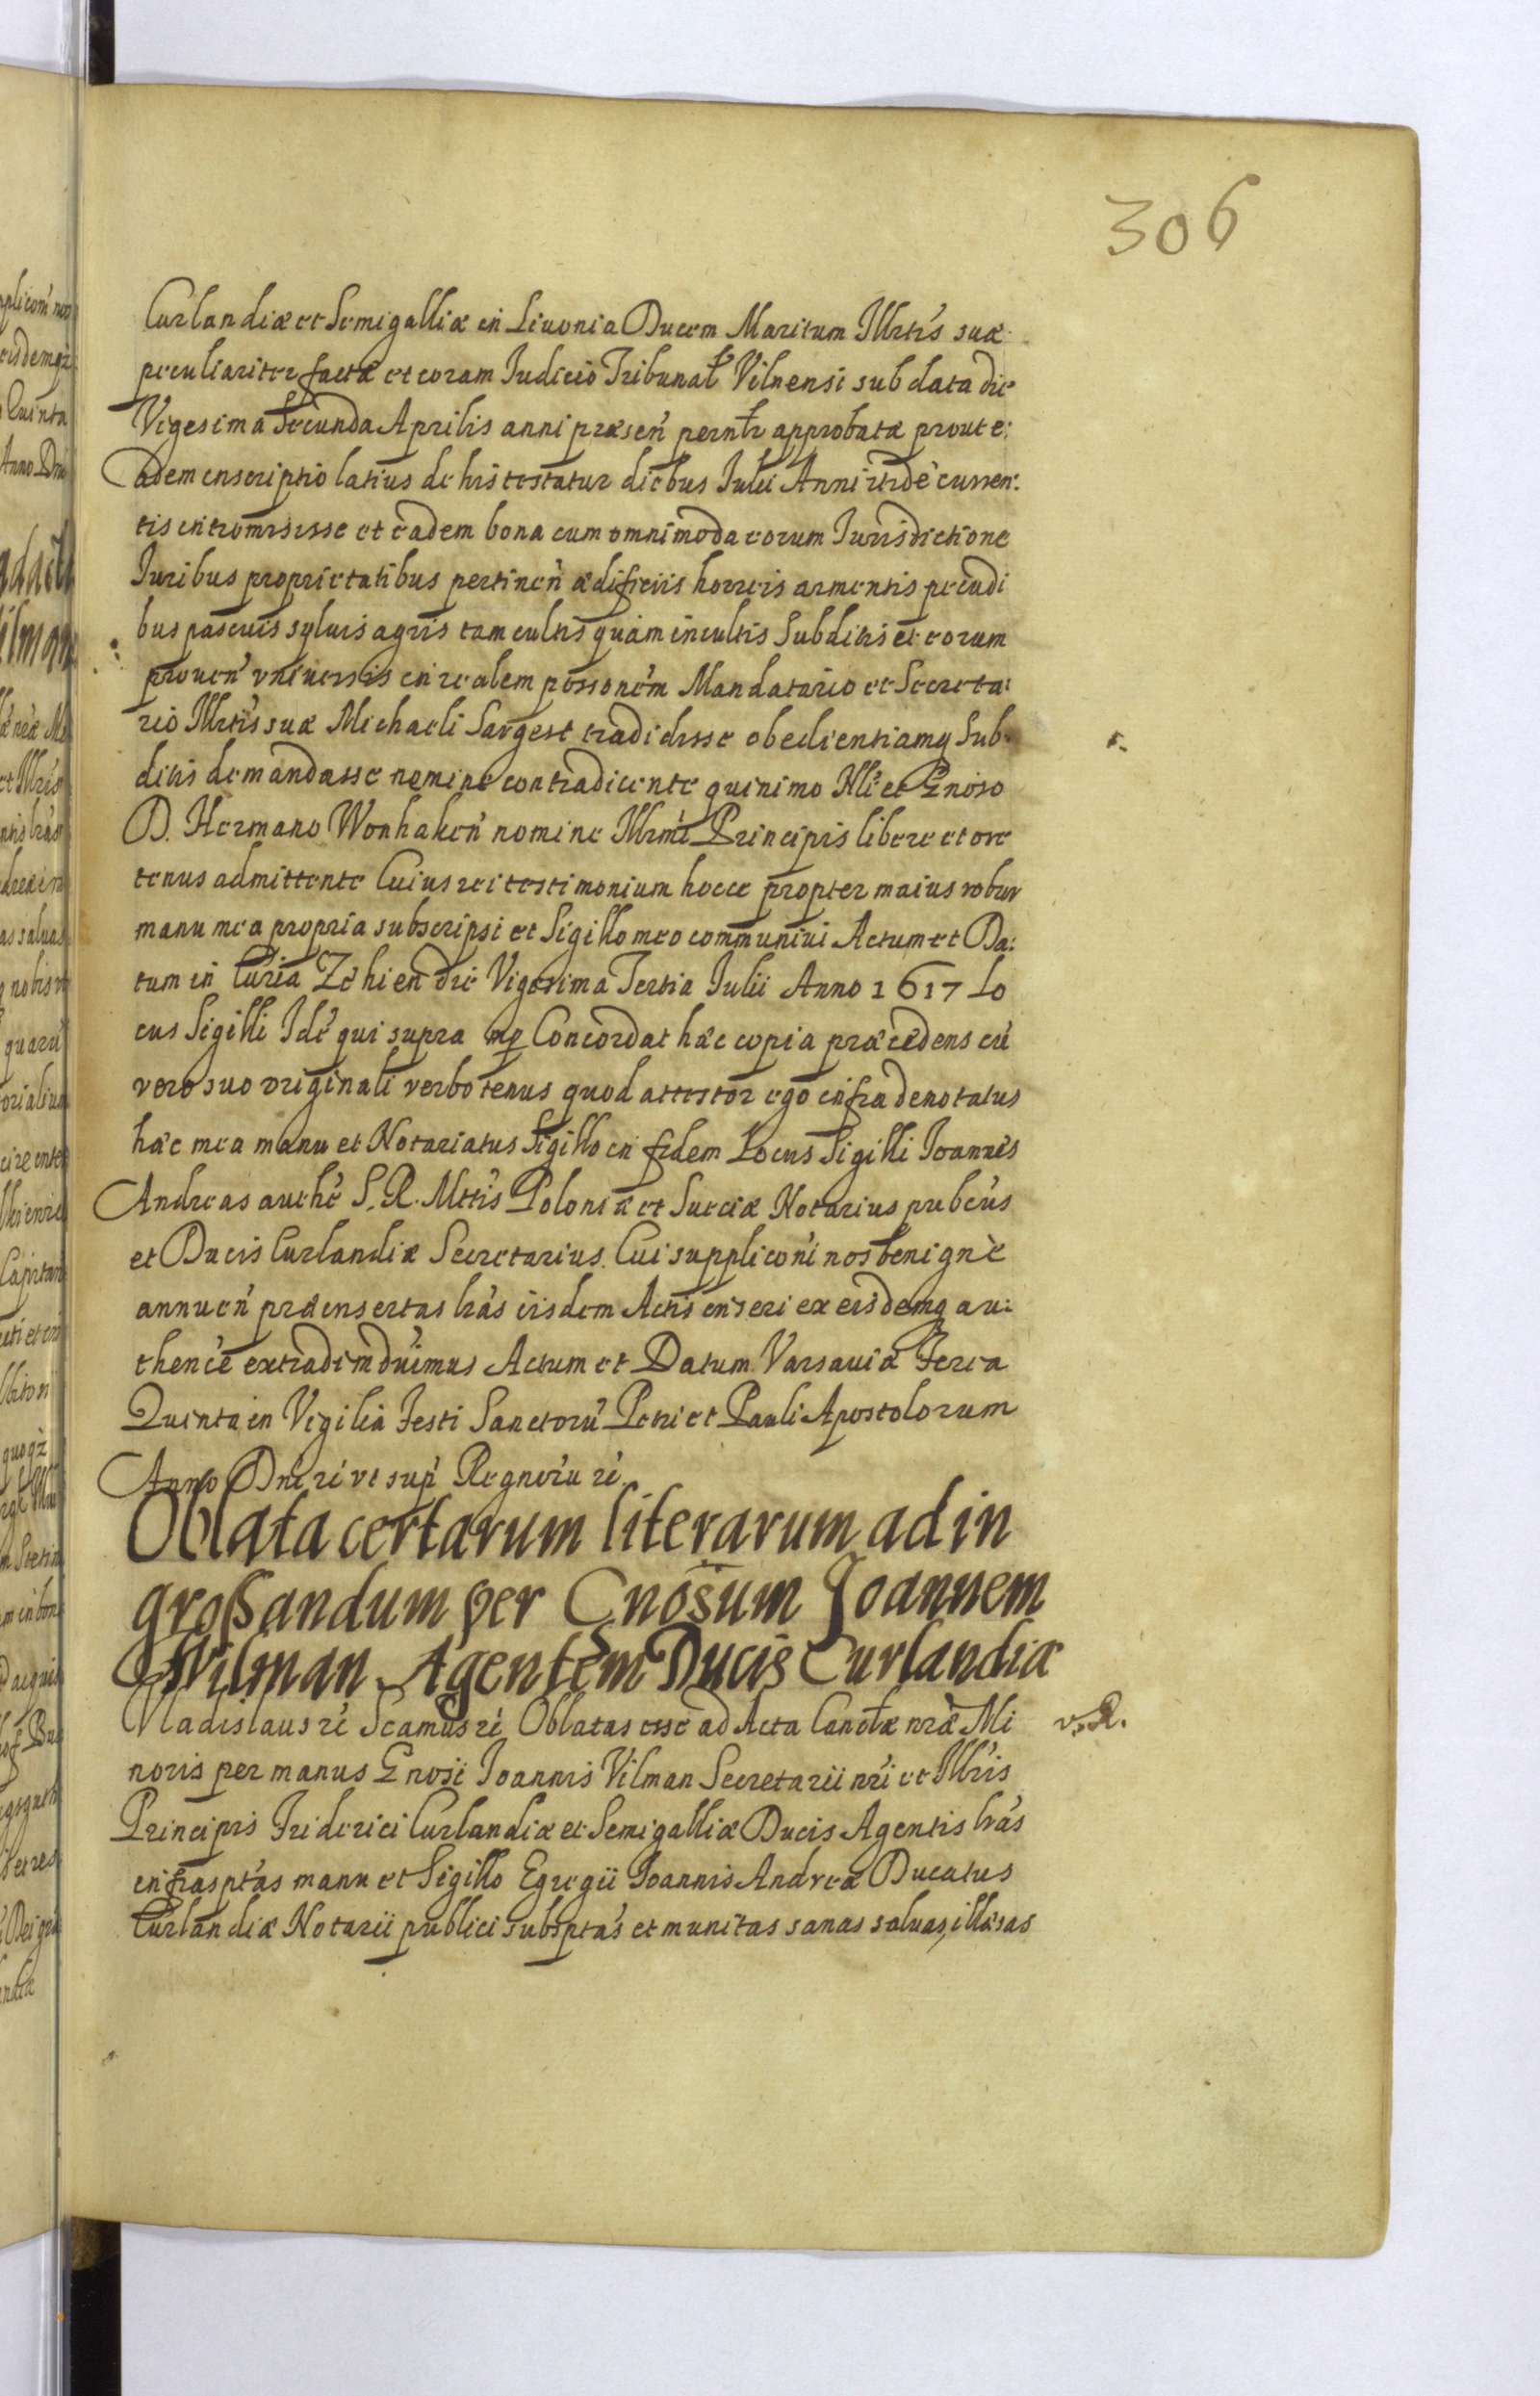 306
Curlandiæ et Semigalliæ in Livonia Ducem Maritum Illrtis suæ
peculiariter factæ et coram Iudicio Tribunal Vilnensi sub data die
Vigesima Secunda Aprilis anni præsen perntr approbatæ prout e:
adem inscriptio latius de his testatur diebus Iulii Anni itide curren:
tis intromisisse et eadem bona cum omnimoda eorum Iurisdictione
Iuribus proprietatibus pertinen ædificiis horreis armentis pecudi
bus pascuis syluis agris tam cultis quàm incultis Subditis et eorum
prouen vniuersis in realem possonem Mandatario et Secreta:
rio Illrtis suæ Michaeli Sargest tradidisse obedientiamq Sub:
ditis demandasse nemine contradicente quinimo Illi et Gnoso
D. Hermano Wonhaken nomine Illrmi Principis libere et ore
tenus admittente Cuius rei testimonium hocce propter maius robur
manu mea propria subscripsi et Sigillo meo communiui Actum et Da:
tum in Curia Zehien die Vigesima Tertia Iulii Anno 1617 Lo
cus Sigilli Idé qui supra mp Concordat hæc copia præcedens cu
vero suo originali verbotenus quod attestor ego infra denotatus
hac mea manu et Notariatus Sigillo in fidem Locus Sigilli Ioannes
Andreas authc S. R. Mttis Poloniæ et Sueciæ Notarius pubcus
et Ducis Curlandiæ Secretarius. Cui suppliconi nos benignè
annuen præinsertas lras iisdem Actis inseri ex eisdemq au:
thence extradi mduimus Actum et Datum Varsauiæ Feria
Quinta in Vigilia Festi Sanctoru Petri et Pauli Apostolorum
Anno Dni zc vt sup Regnoru zc
Oblata certarum literarum ad in
großandum per Gnosum Joannem
Wilman Agentem Ducis Curlandiæ
Vladislaus zc Scamus zc Oblatas esse ad Acta Canclæ nræ Mi
noris per manus Gnosi Ioannis Vilman Secretarii nri et Illris
Principis Friderici Curlandiæ et Semigalliæ Ducis Agentis lras
infrasptas manu et Sigillo Egregii Ioannis Andreæ Ducatus
Curlandiæ Notarii publici subsptas et munitas sanas saluas, illæsas